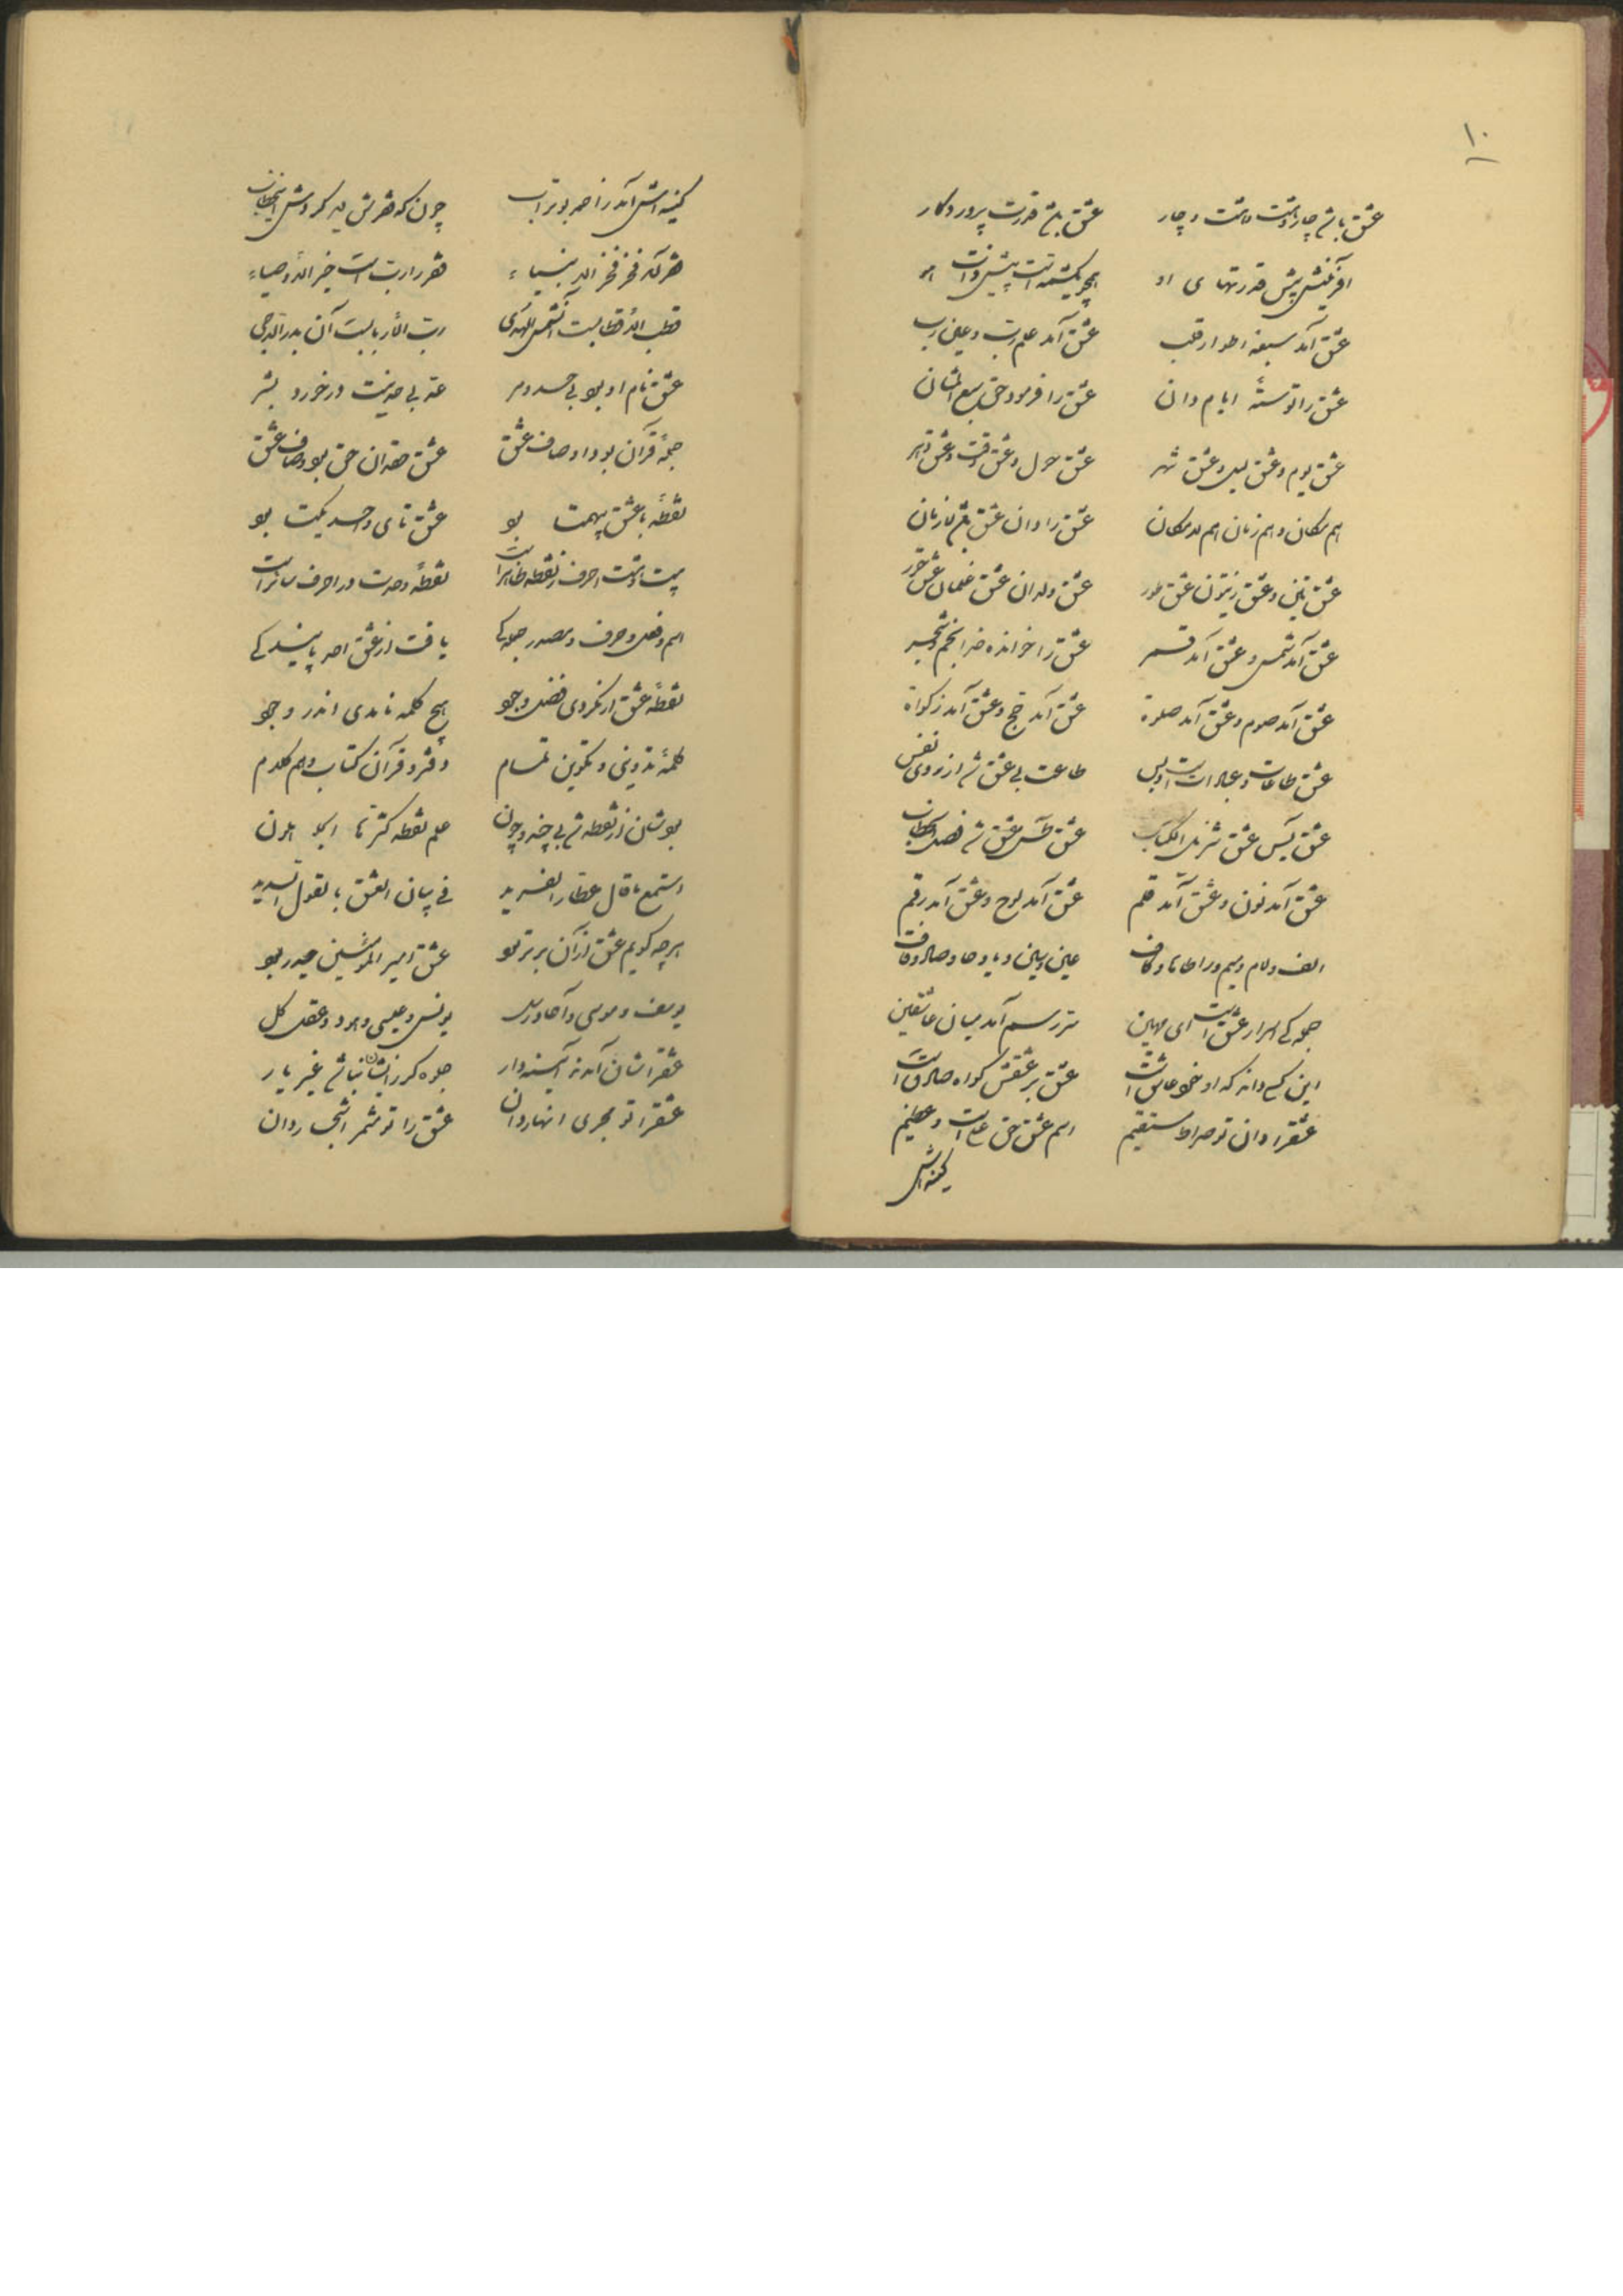 ۱۰
عشق باشد چار و هشت و هشت و چار عشق باشد قدرت پروردگار
آفرینش پیش قدرتهای او
عشق آمد سبعه اطوار قلب عشق آمد علم رب و عین رب
عشق را تو ستهٔ ایام دان عشق را فرمود حق سبع المثان
عشق یوم و عشق لیل و عشق شهر عشق حول و عشق وقت و عشق دهر
هم مکان و هم زمان هم لامکان عشق را دان عشق باشد لازمان
عشق تین و عشق زیتون عشق طور عشق ولدان عشق غلمان عشق حور
عشق آمد شمس و عشق آمد قمر عشق را خوانده خدا نجم و شجر
عشق آمد صوم و عشق آمد صلوة عشق آمد حج و عشق آمد زکواة
عشق طاعات و عبادات است و بس طاعت بی عشق شد از روی نفس
عشق یس عشق شد نزل الکتاب عشق طس عشق شد فصل الخطاب
عشق آمد نون و عشق آمد قلم عشق آمد لوح و عشق آمد رقم
الف و لام و میم و را طا ها و کاف عین و سین و یا و حا و صاد و قاف
جمله کی اسرار عشق است ای مهین سر رسم آمد میان عاشقین
این کسی داند که او خود عاشق است عشق بر عشقش گواه صادق است
عشقرا دان تو صراط مستقیم اسم عشق حق علی است و عظیم
کنیه اش
کنیه اش آمد ز احمد بوتراب چون که
فقر آمد فخر فخر الانبیاء فقر را رب است خیر الاوصیاء
قطب الاقطابست آن شمس الهدی رب الاربابست آن بدر الدجی
عشق نام او بود بی حد و مر
جمله قرآن بود اوصاف عشق عشق حق دان حق بود وصاف عشق
نقطهٔ با عشق بیهمتا بود عشق تای واحد یکتا بود
بیست و هشت احرف ز نقطه ظاهر است نقطهٔ وحدت در احرف سائر است
اسم و فعل و حرف و مصدر جمله کی یافت از عشق احد پایندگی
نقطهٔ عشق ار نکردی فضل و جود هیچ کلمه نامدی اندر وجود
کلمهٔ تدوینی و تکوین تمام دفتر و قرآن کتاب و هم کلام
بودشان از نقطه شد بی چند و چون علم نقطه کثرها الجاهلون
استمع ما قال عطار الفرید فی بیان العشق بالقول السدید
هرچه گویم عشق از آن برتر بود عشق امیر المؤمنین حیدر بود
یوسف و موسی و آحاد رسل یونس و عیسی و هود و عقل کل
عشقرا شان آمدند آیینه دار جلوه گر زایشان نباشد غیر یار
عشقرا تو مجری انهار دان عشق را تو مثمر اشجار دان